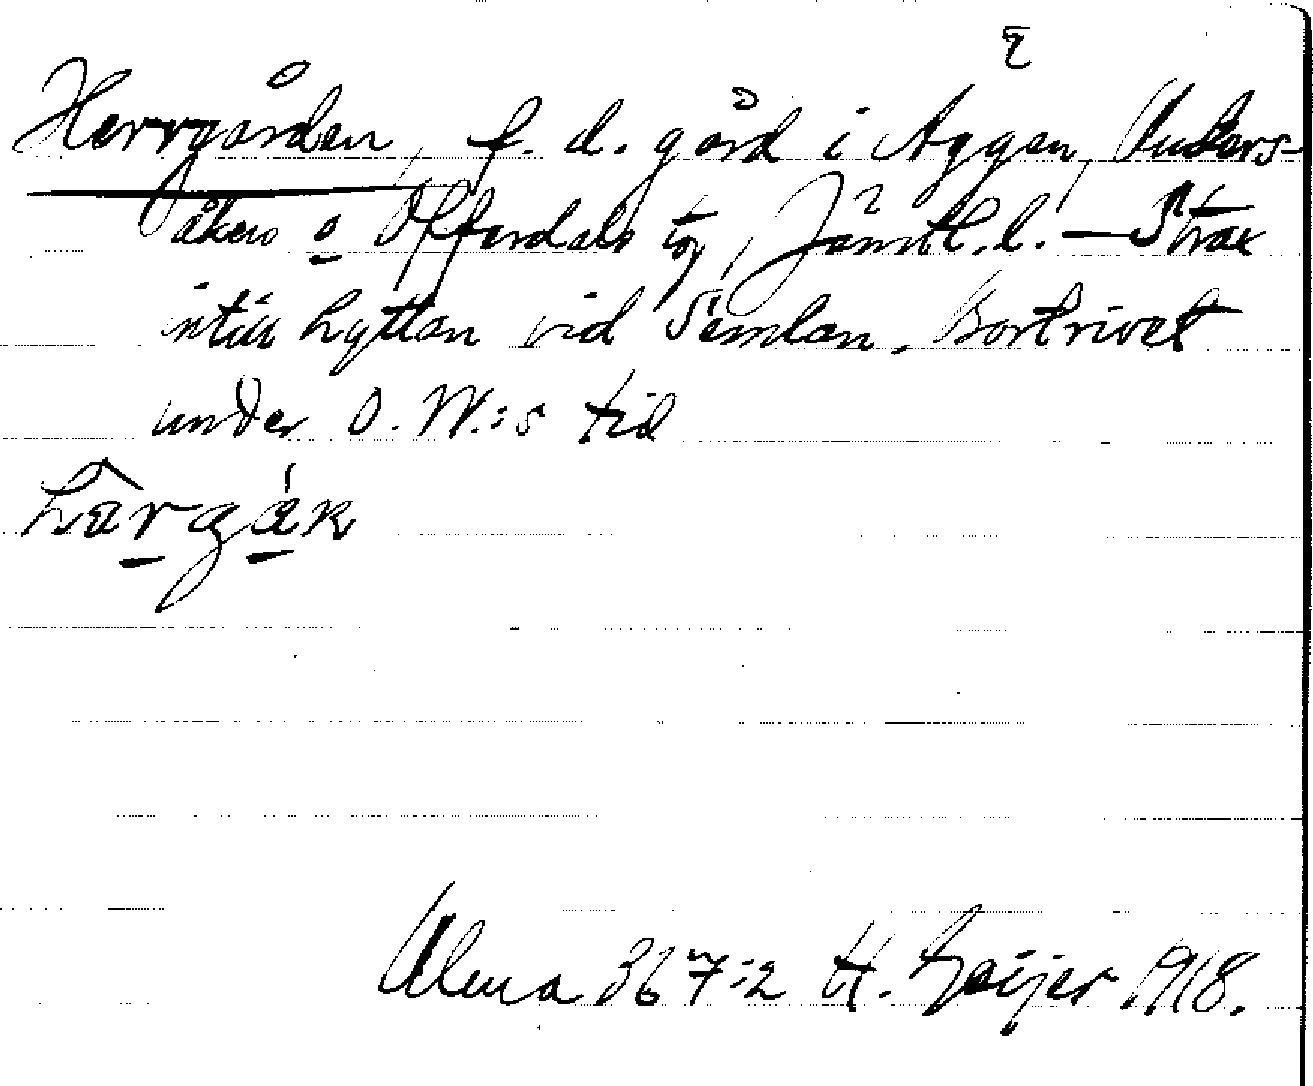 Herrgården, f. d. gård i Äggen, Undersåkers o Offerdals tg, Jämtl. l. — Strax
intill hyttan vid Semlan. Bortrivet
under O. W.:s tid
Ulma 367:2 H. Geijer 1918.